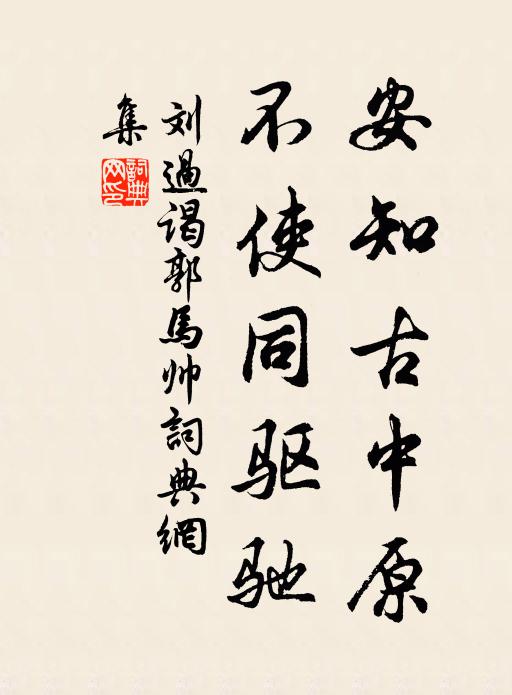 安知古中原
不使同驱驰
刘過谒郭馬帅詞典網
集
詞典網印